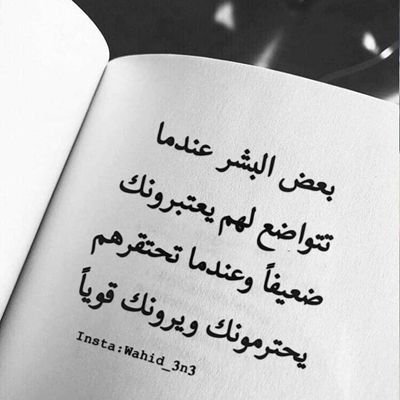 بعض البشر عندما
تتواضع لهم يعتبرونك
ضعيفاً وعندما تحتقرهم
يحترمونك ويرونك قوياً
Insta:Wahid_3n3